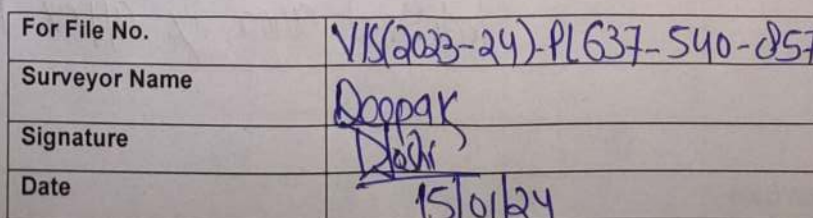 For File No. VIS(2023-24)-PL637-540-857
Surveyor Name Deepak
Signature
Date 15/01/24